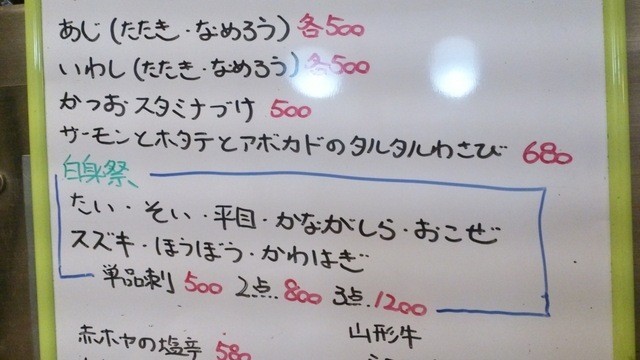 あじ(たたき・なめろう) 各500
いわし(たたき・なめろう) 各500
かつおスタミナづけ 500
サーモンとホタテとアボカドのタルタルわさび 680
白身祭
たい・そい・平目・かながしら・おこぜ
スズキ・ほうぼう・かわはぎ
単品刺 500 2点.800 3点.1200
赤ホヤの塩辛 580
山形牛